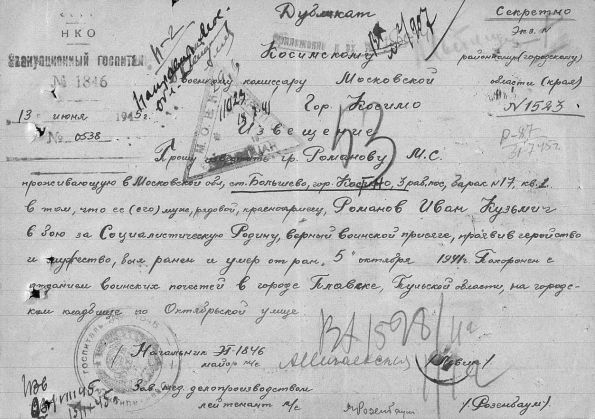 Дубликат
Секретно
Экз. №
НКО
Эвакуационный госпиталь
№ 1846
13 июня 1945г.
№ 0538
Косинскому районному (городскому)
военному комиссару Московской области (края)
гор. Косино
№ 1523
Извещение
53
Прошу известить гр. Романову М.С.
проживающую в Московской обл, ст. Большево, гор. Косино, 3 рабпос, барак №17, кв. 2
в том, что ее (его) муж, рядовой, красноармеец, Романов Иван Кузьмич
в бою за Социалистическую Родину, верный воинской присяге, проявив геройство
и мужество, был ранен и умер от ран. 5 октября 1941г Похоронен с
отданием воинских почестей в городе Плавске, Тульской области, на городс-
ком кладбище по Октябрьской улице
Начальник ЭГ-1846
майор м/с
Зав. мед. делопроизводством
лейтенант м/с
Розенбаум
/Розенбаум/